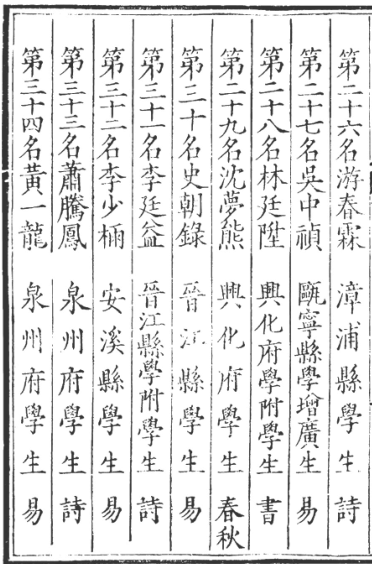 第二十六名游春霖 漳浦縣學生 詩
第二十七名吳中禎 甌寧縣學增廣生 易
第二十八名林廷陞 興化府學附學生 書
第二十九名沈夢熊 興化府學生 春秋
第三十名史朝錄 晉江縣學生 易
第三十一名李廷益 晉江縣學附學生 詩
第三十二名李少楠 安溪縣學生 易
第三十三名蕭騰鳳 泉州府學生 詩
第三十四名黃一龍 泉州府學生 易